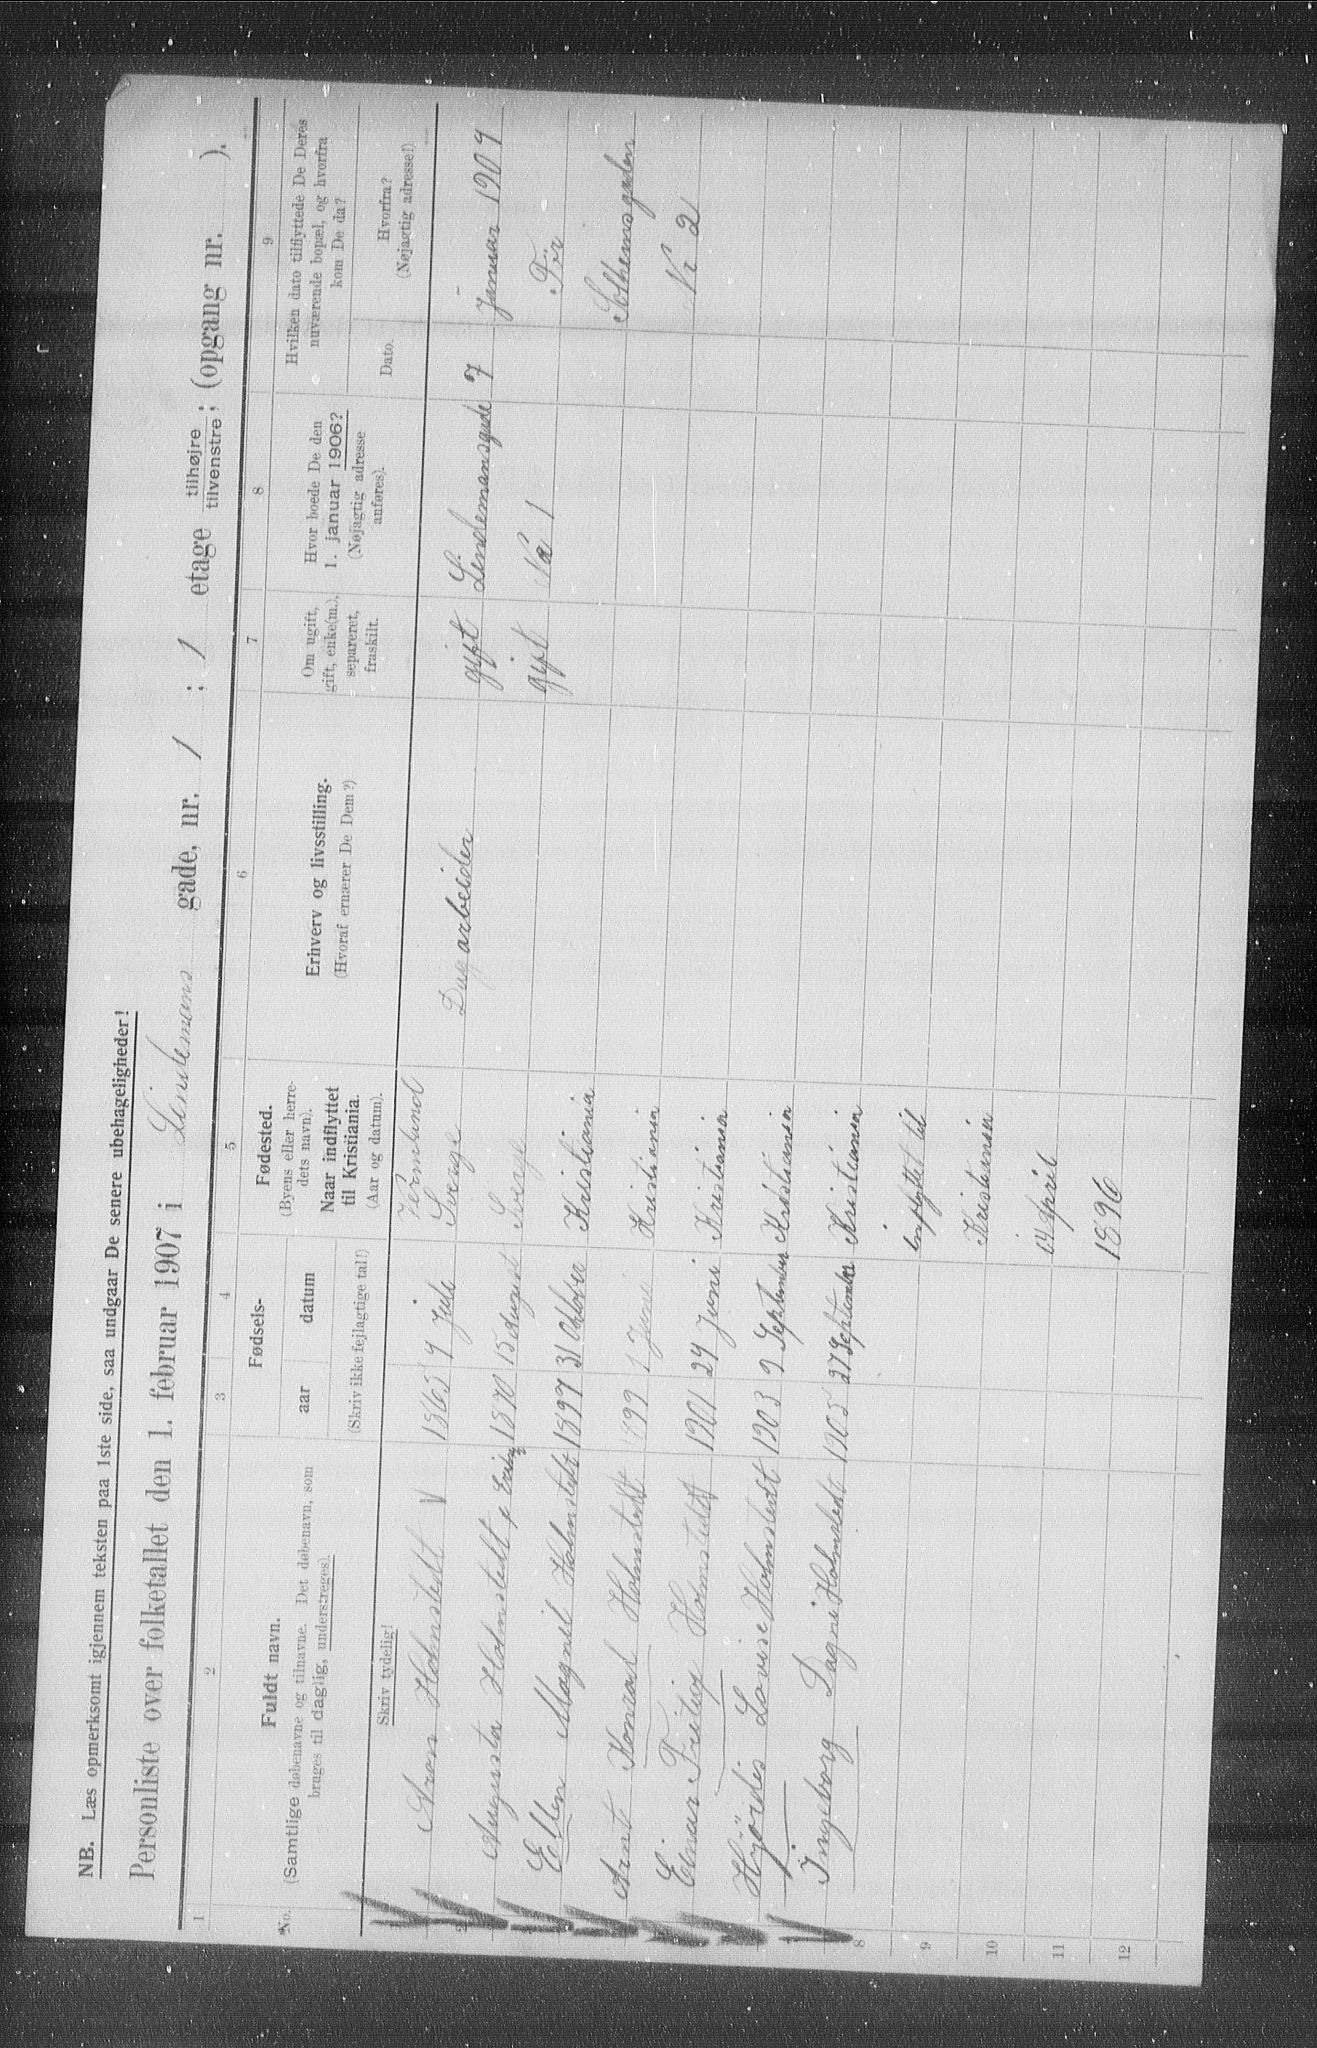 NB. Læs opmerksomt igjennem teksten paa 1ste side, saa undgaar De senere ubehageligheder!
Personliste over folketallet den 1. februar 1907 i Lindemans gade, nr. 1 ; 1 etage tilhøjre tilvenstre; (opgang nr. ).
1 2 3 4 5 6 7 8 9
No.
Fuldt navn.
(Samtlige døbenavne og tilnavne. Det døbenavn, som
bruges til daglig, understreges).
Skriv tydelig!
Fødsels-
aar datum
(Skriv ikke fejlagtige tal!)
Fødested.
(Byens eller herre-
dets navn).
Naar indflyttet
til Kristiania.
(Aar og datum).
Erhverv og livsstilling.
(Hvoraf ernærer De Dem?)
Om ugift,
gift, enke(m.),
separeret,
fraskilt.
Hvor boede De den
1. januar 1906?
(Nøjagtig adresse
anføres).
Hvilken dato tilflyttede De Deres
nuværende bopæl, og hvorfra
kom De da?
Dato.
Hvorfra?
(Nøjagtig adresse!)
Aron Holmstedt 1865 4 Juli Vermland Sverge Dagarbeider gift Lindemansgade 7 Januar 1904
Augusta Holmstedt 1870 15 August Sverge gift No 1 Fra
Ellen Magnil Holmstedt 1897 31 Oktober Kristiania
Arnt Konrad Holmstedt 1899 1 Juni Kristiania
Einar Frilip Holmstedt 1901 24 Juni Kristiania
Hjørdis Lovise Holmstedt 1903 9 September Kristiania
Ingeborg Dagni Holmstedt 1905 27 September Kristiania
Nr 2
8
9 inflyttet til
10 Kristiania
11 April
12 1896